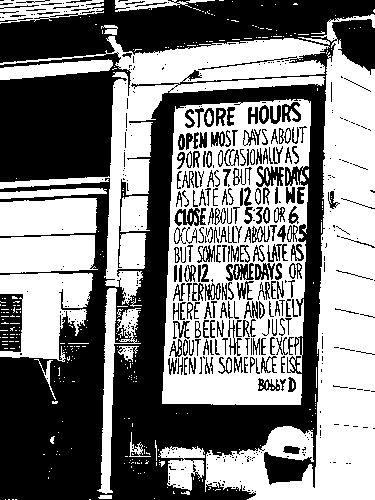 STORE HOURS
OPEN MOST DAYS ABOUT
9 OR 10, OCCASIONALLY AS
EARLY AS 7 BUT SOMEDAYS
AS LATE AS 12 OR 1. WE
CLOSE ABOUT 5:30 OR 6,
OCCASIONALLY ABOUT 4 OR 5
BUT SOMETIMES AS LATE AS
11 OR 12. SOMEDAYS OR
AFTERNOONS WE AREN'T
HERE AT ALL AND LATELY
I'VE BEEN HERE JUST
ABOUT ALL THE TIME EXCEPT
WHEN I'M SOMEPLACE ELSE
BOBBY D